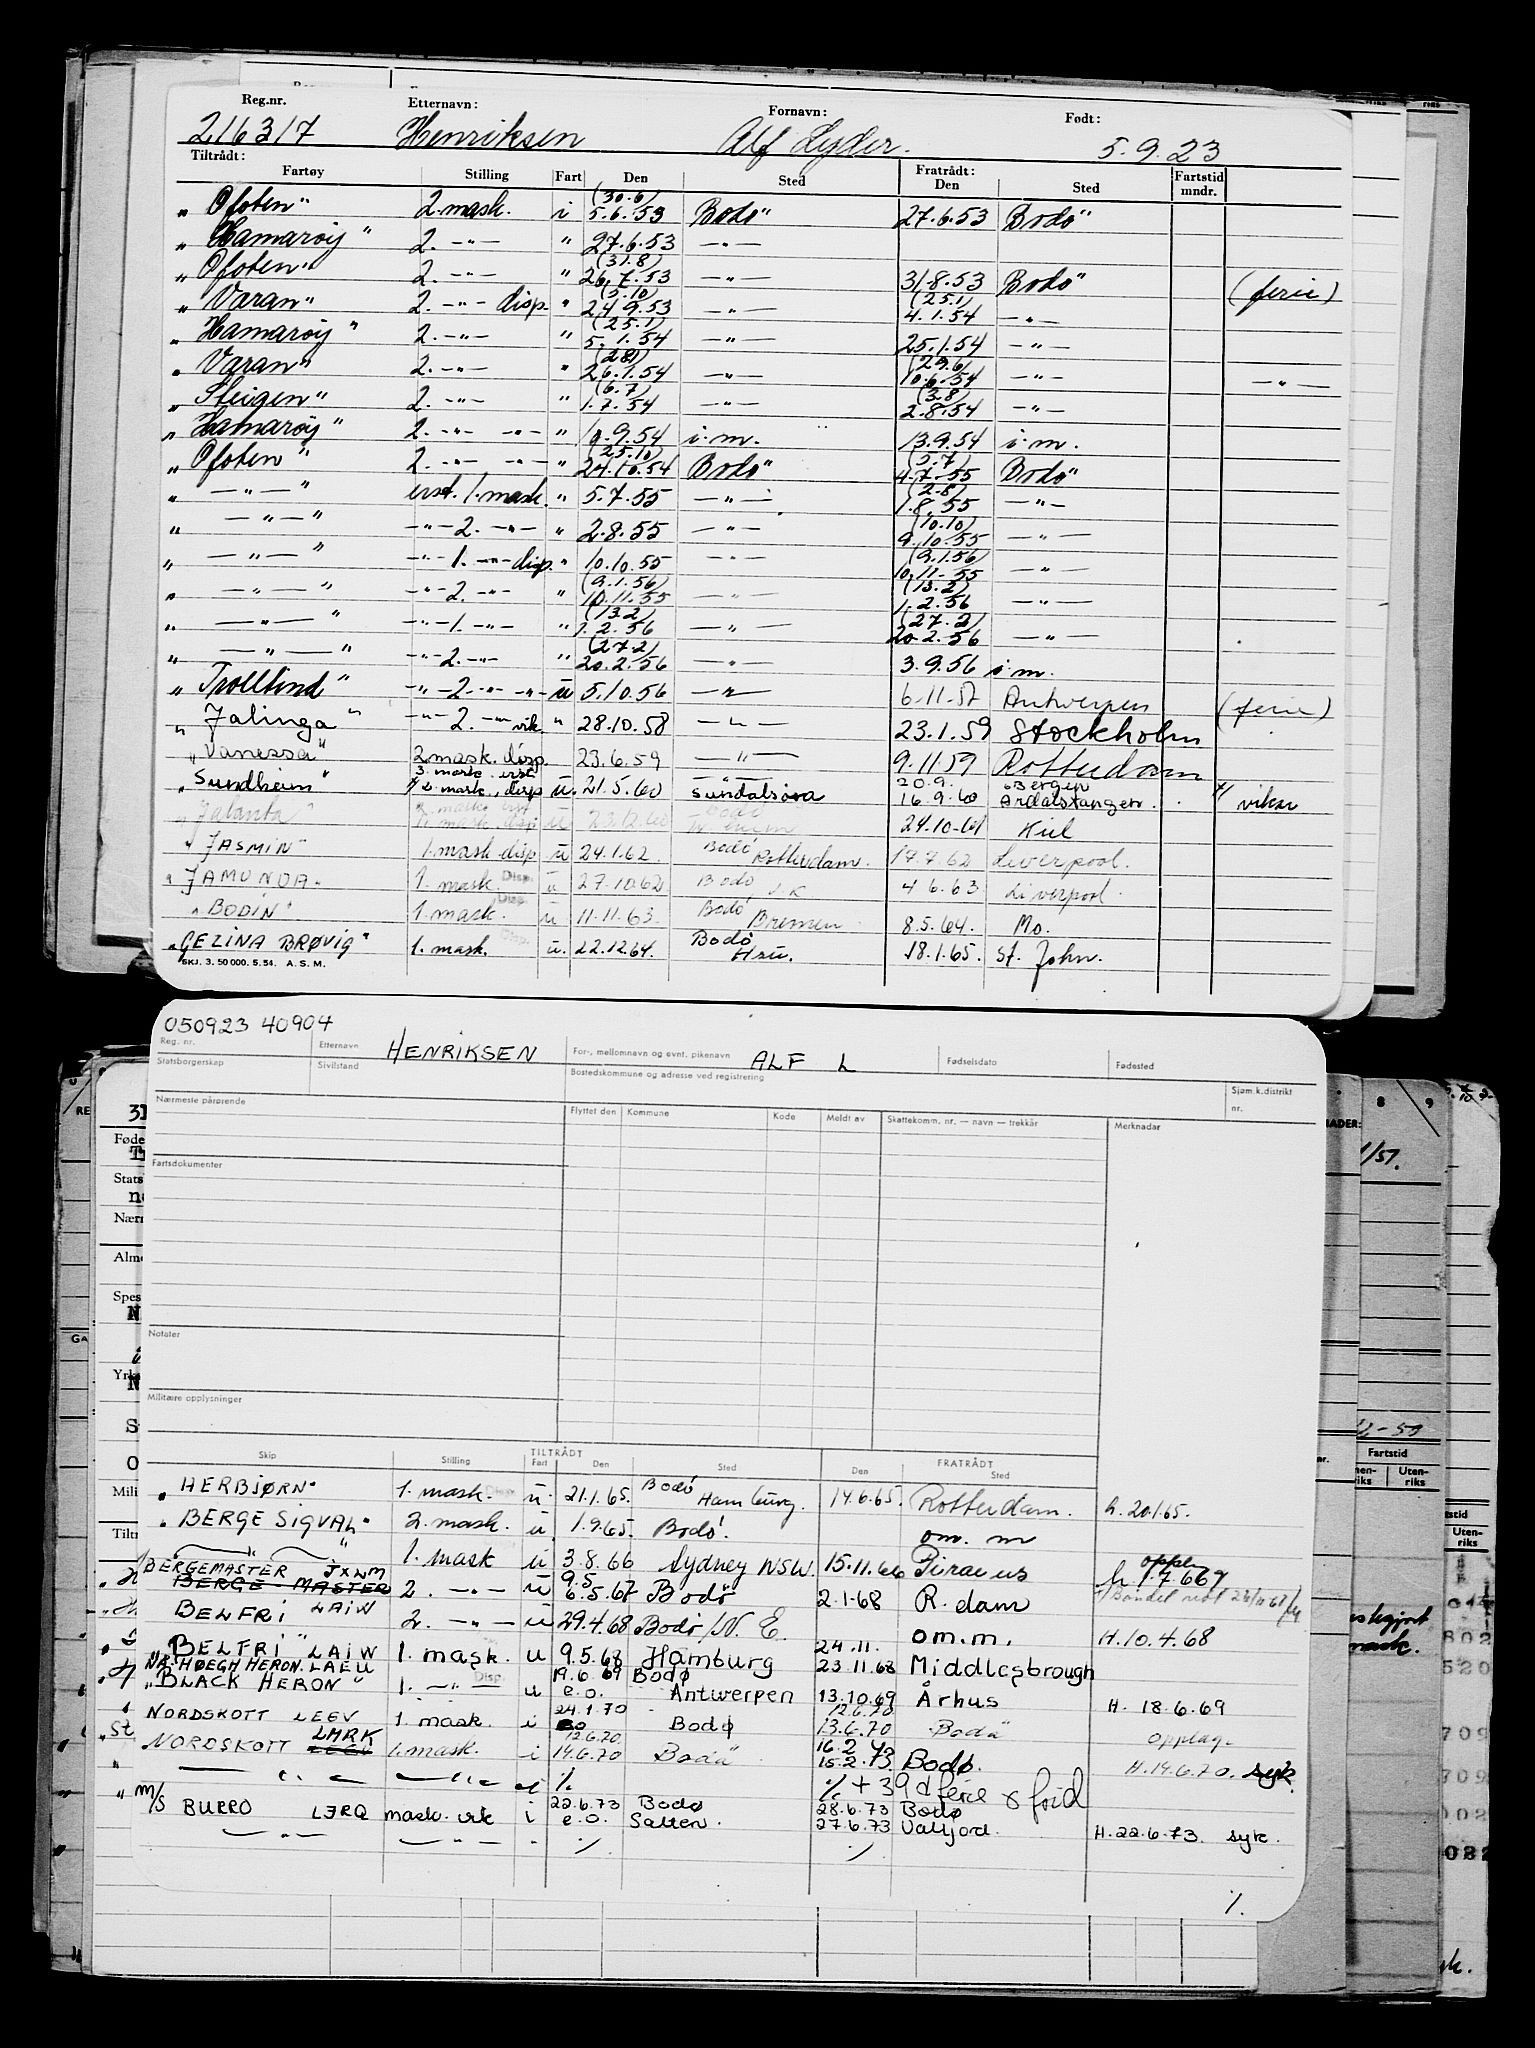 Reg.nr. Etternavn: Fornavn: Født:
216317 Henriksen Alf Lyder. 5.9.23
Tiltrådt: Fratrådt:
Fartøy Stilling Fart Den Sted Den Sted Fartstid mndr.
(30.6)
„ Ofoten" 2. mask. i 5.6.53 Bodö" 27.6.53 Bodö"
„ Hamaröy" 2. -"- " 27.6.53 -"-
(31.8)
„ Ofoten" 2. -"- " 26.7.53 -"- 31.8.53 Bodö" (ferie)
(5.10) (25.1)
„ Varan" 2. -"- disp. " 24.9.53 -"- 4.1.54 -"-
(25.1)
„ Hamaröy" 2. -"- " 5.1.54 -"- 25.1.54 -"-
(28) (29.6)
„ Varan" 2. -"- " 26.1.54 -"- 10.6.54 -"- -"-
(6.7) (3.8)
„ Steigen" 2. -"- " 1.7.54 -"- 2.8.54 -"-
„ Hamaröy" 2. -"- -"- " 1.9.54 i.m. 13.9.54 i.m.
(25.10) (5.7)
„ Ofoten" 2. -"- -"- " 24.10.54 Bodö" 4.7.55 Bodö"
(2.8)
„ -"-" erst. 1. mask. " 5.7.55 -"- 1.8.55 -"-
(10.10)
„ -"-" -"- 2. -"- " 2.8.55 -"- 9.10.55 -"-
(9.1.56)
„ -"-" -"- 1. -"- disp. " 10.10.55 -"- 10.11.55 -"-
(9.1.56) (13.2)
„ -"-" -"- 2. -"- " 10.11.55 -"- 1.2.56 -"-
(13.2) (27.2)
„ -"-" -"- 1. -"- " 1.2.56 -"- 20.2.56 -"-
(27.2)
„ -"-" -"- 2. -"- " 20.2.56 -"- 3.9.56 i.m.
„ Trolltind" -"- 2. -"- -"- u 5.10.56 -"- 6.11.57 Antwerpen (ferie)
„ Jalinga" -"- 2. -"- vik. " 28.10.58 -"- 23.1.59 Stockholm
„ Vanessa" 2 mask. disp. 23.6.59 -"- 9.11.59 Rotterdam
3. mask. erst. -"- 20.9. Bergen
„ Sundheim" 2. mask., disp u. 21.5.60 Sundalsöra 16.9.60 Ardalstangen. vikar
„ Jalanta" 1. mask disp u 23.12.60 Bodö 24.10.61 Kiel
" JASMIN" 1. mask disp u 24.1.62. Bodö Rotterdam. 17.7.62 Liverpool.
" JAMUNDA" 1. mask. Disp. u 27.10.62 Bodö 4.6.63 Liverpool.
" BODIN" 1. mask. Disp. u 11.11.63. Bodö Bremen 8.5.64. Mo.
" GEZINA BRØVIG" 1. mask. Disp. u. 22.12.64. Bodö 18.1.65. St. John.
SKJ. 3. 50 000. 5.54. A. S. M.
050923 40904
Reg. nr. Etternavn HENRIKSEN For-, mellomnavn og evnt. pikenavn ALF L Fødselsdato Fødested
Statsborgerskap Sivilstand Bostedskommune og adresse ved registrering Sjøm.k.distrikt nr.
Nærmeste pårørende Flyttet den Kommune Kode Meldt av Skattekomm. nr. — navn — trekkår Merknader
Fartsdokumenter
Notater
Militære opplysninger
TILTRÅDT FRATRÅDT
Skip Stilling Fart Den Sted Den Sted
" HERBJØRN" 1. mask. Disp. u. 21.1.65. Bodö Hamburg. 14.6.65. Rotterdam. h. 20.1.65.
" BERGE SIGVAL" 2. mask. u. 1.9.65. Bodö. om. m
" 1. mask u 3.8.66 Sydney NSW. 15.11.66 Piraeus
BERGEMASTER JXLM 9.5 oppl
BERGE MASTER 2. -"- u 6.5.67 Bodö 2.1.68 R.dam h 1.7 667
BELFRI LAIW 2. -"- u 29.4.68 Bodö/N.E om.m. H. 10.4.68
" BELFRI" LAIW 1. mask. u 9.5.68 Hamburg 24.11. 23.11.68 Middlesbrough
NÅ: HØEGH HERON. LAEU 19.6.69 Bodø
"BLACK HERON" 1. -"- Disp. u e.o. Antwerpen 13.10.69 Århus H. 18.6.69
24.1.70 12.6.70
NORDSKOTT LEEV 1. mask. i Bodø 13.6.70 Bodö opplag
LMRK 12.6.70 16.2.73
NORDSKOTT 1. mask. i 14.6.70 Bodö 15.2.73 Bodø. H. 14.6.70. syk.
— " — — " — i % % + 39 d ferie & frid
22.6.73 Bodø 28.6.73 Bodø
m/s BURRO LERQ mask. vik i e.o. Salten. 27.6.73 Valljord. H. 22.6.73. syk.
— " — — " — " % %
%.